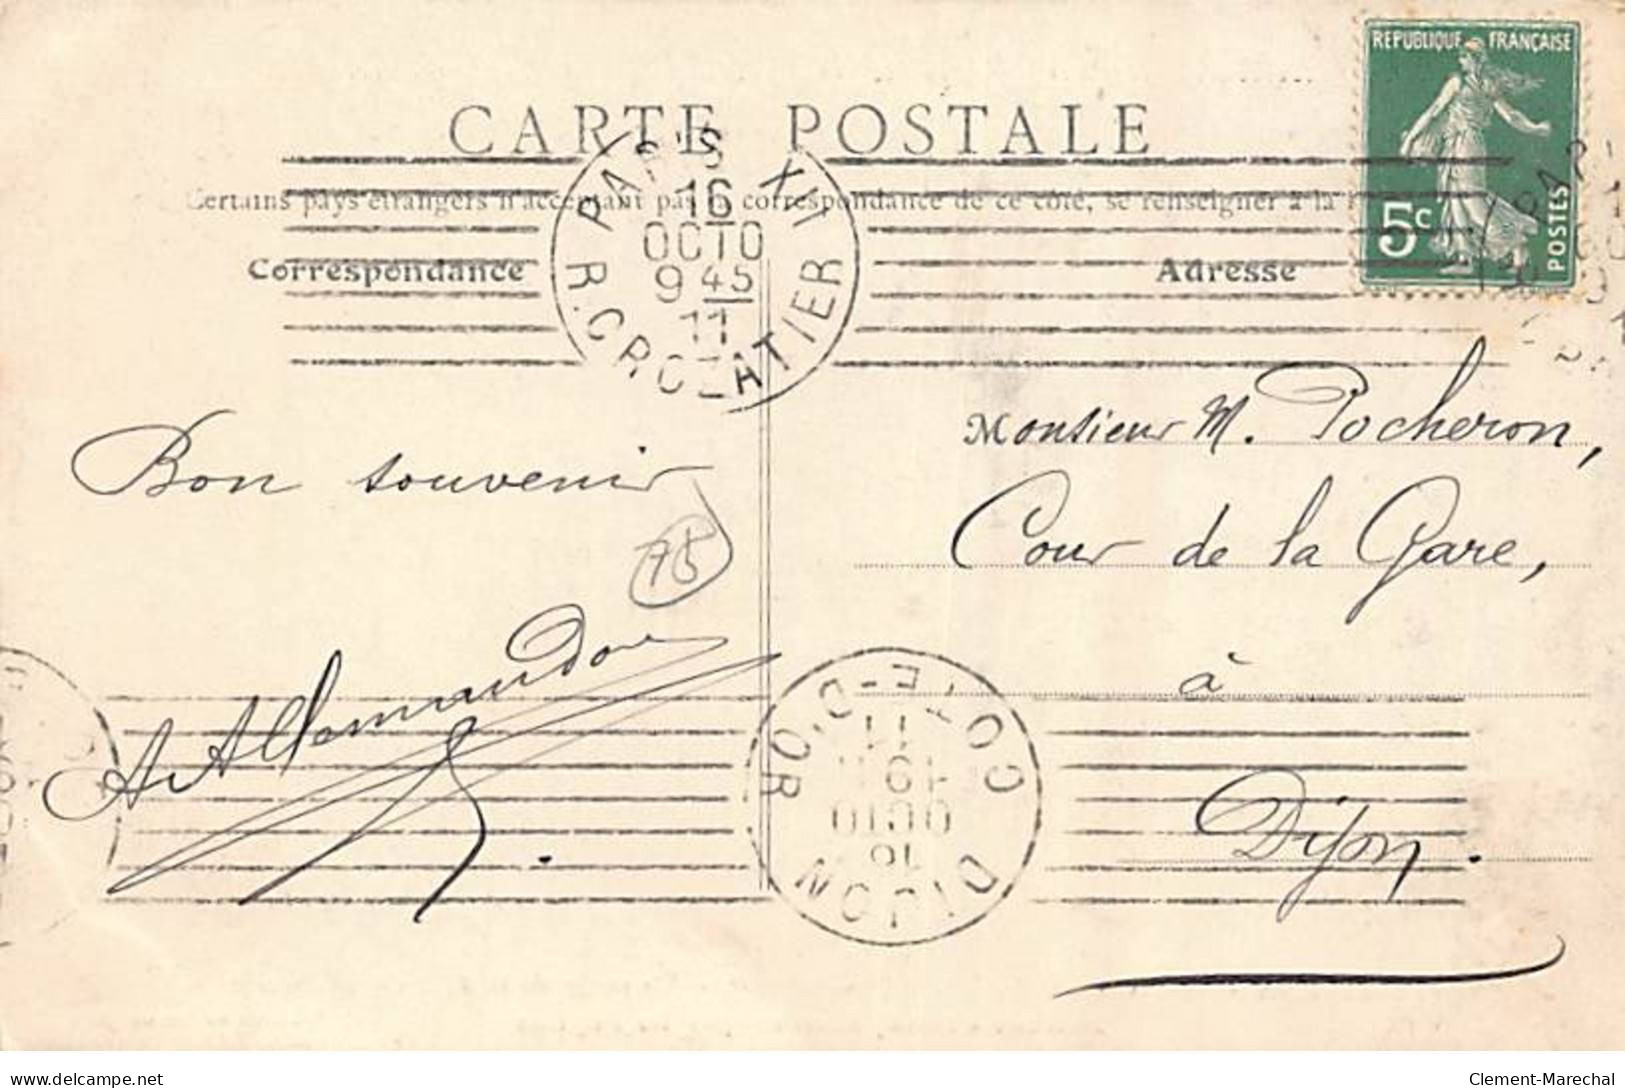 REPUBLIQUE FRANÇAISE
5c
POSTES
CARTE POSTALE
Certains pays étrangers n'acceptant pas la correspondance de ce côté, se renseigner à la
Correspondance
Adresse
PARIS XII
16
OCTO
9 45
11
R. CROZATIER
Bon souvenir
75
A. Allemandou
Monsieur M. Pocheron,
Cour de la Gare,
à
Dijon.
DIJON
16
OCTO
19 11
11
COTE-D'OR
delcampe.net
Clement-Marechal